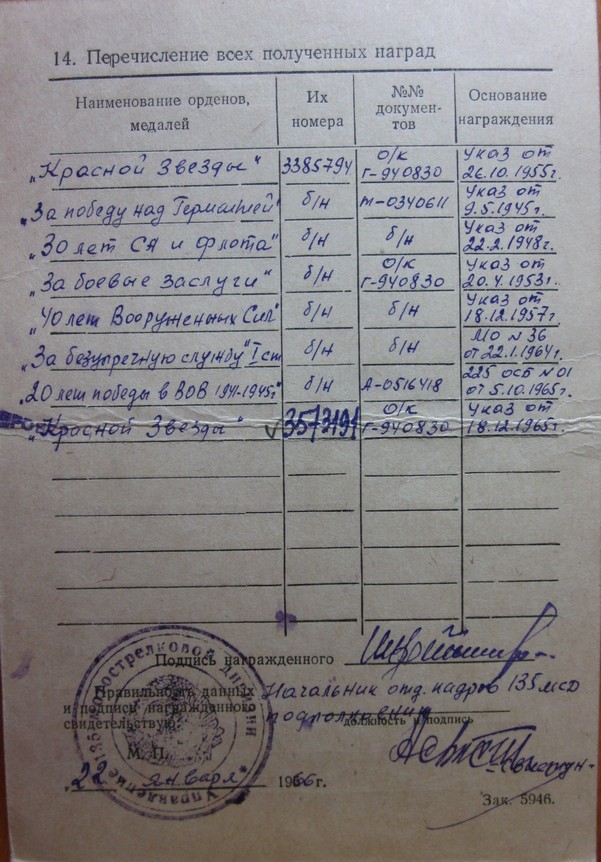 14. Перечисление всех полученных наград
Наименование орденов, медалей
Их номера
№№ докумен-тов
Основание награждения
„Красной Звезды" 3385794 о/к г-940830 Указ от 26.10.1955г.
„За победу над Германией" б/н т-0340611 Указ от 9.5.1945г.
„30 лет СА и Флота" б/н б/н Указ от 22.2.1948г.
„За боевые заслуги" б/н о/к г-940830 Указ от 20.4.1953г.
„40 лет Вооруженных Сил" б/н б/н Указ от 18.12.1957г.
„За безупречную службу" I ст б/н б/н МО №36 от 22.1.1964г.
„20 лет победы в ВОВ 1941-1945г" б/н А-0516418 225 ОСБ №01 от 5.10.1965г.
„Красной Звезды" 3573191 о/к г-940830 Указ от 18.12.1965г.
Подпись награжденного
Правильность данных и подписи награжденного свидетельствую:
Начальник отд. кадров 135 мсд
подполковник
должность и подпись
М. П.
„22" января 1966г.
Зак. 5946.
Управление 135 мотострелковой дивизии